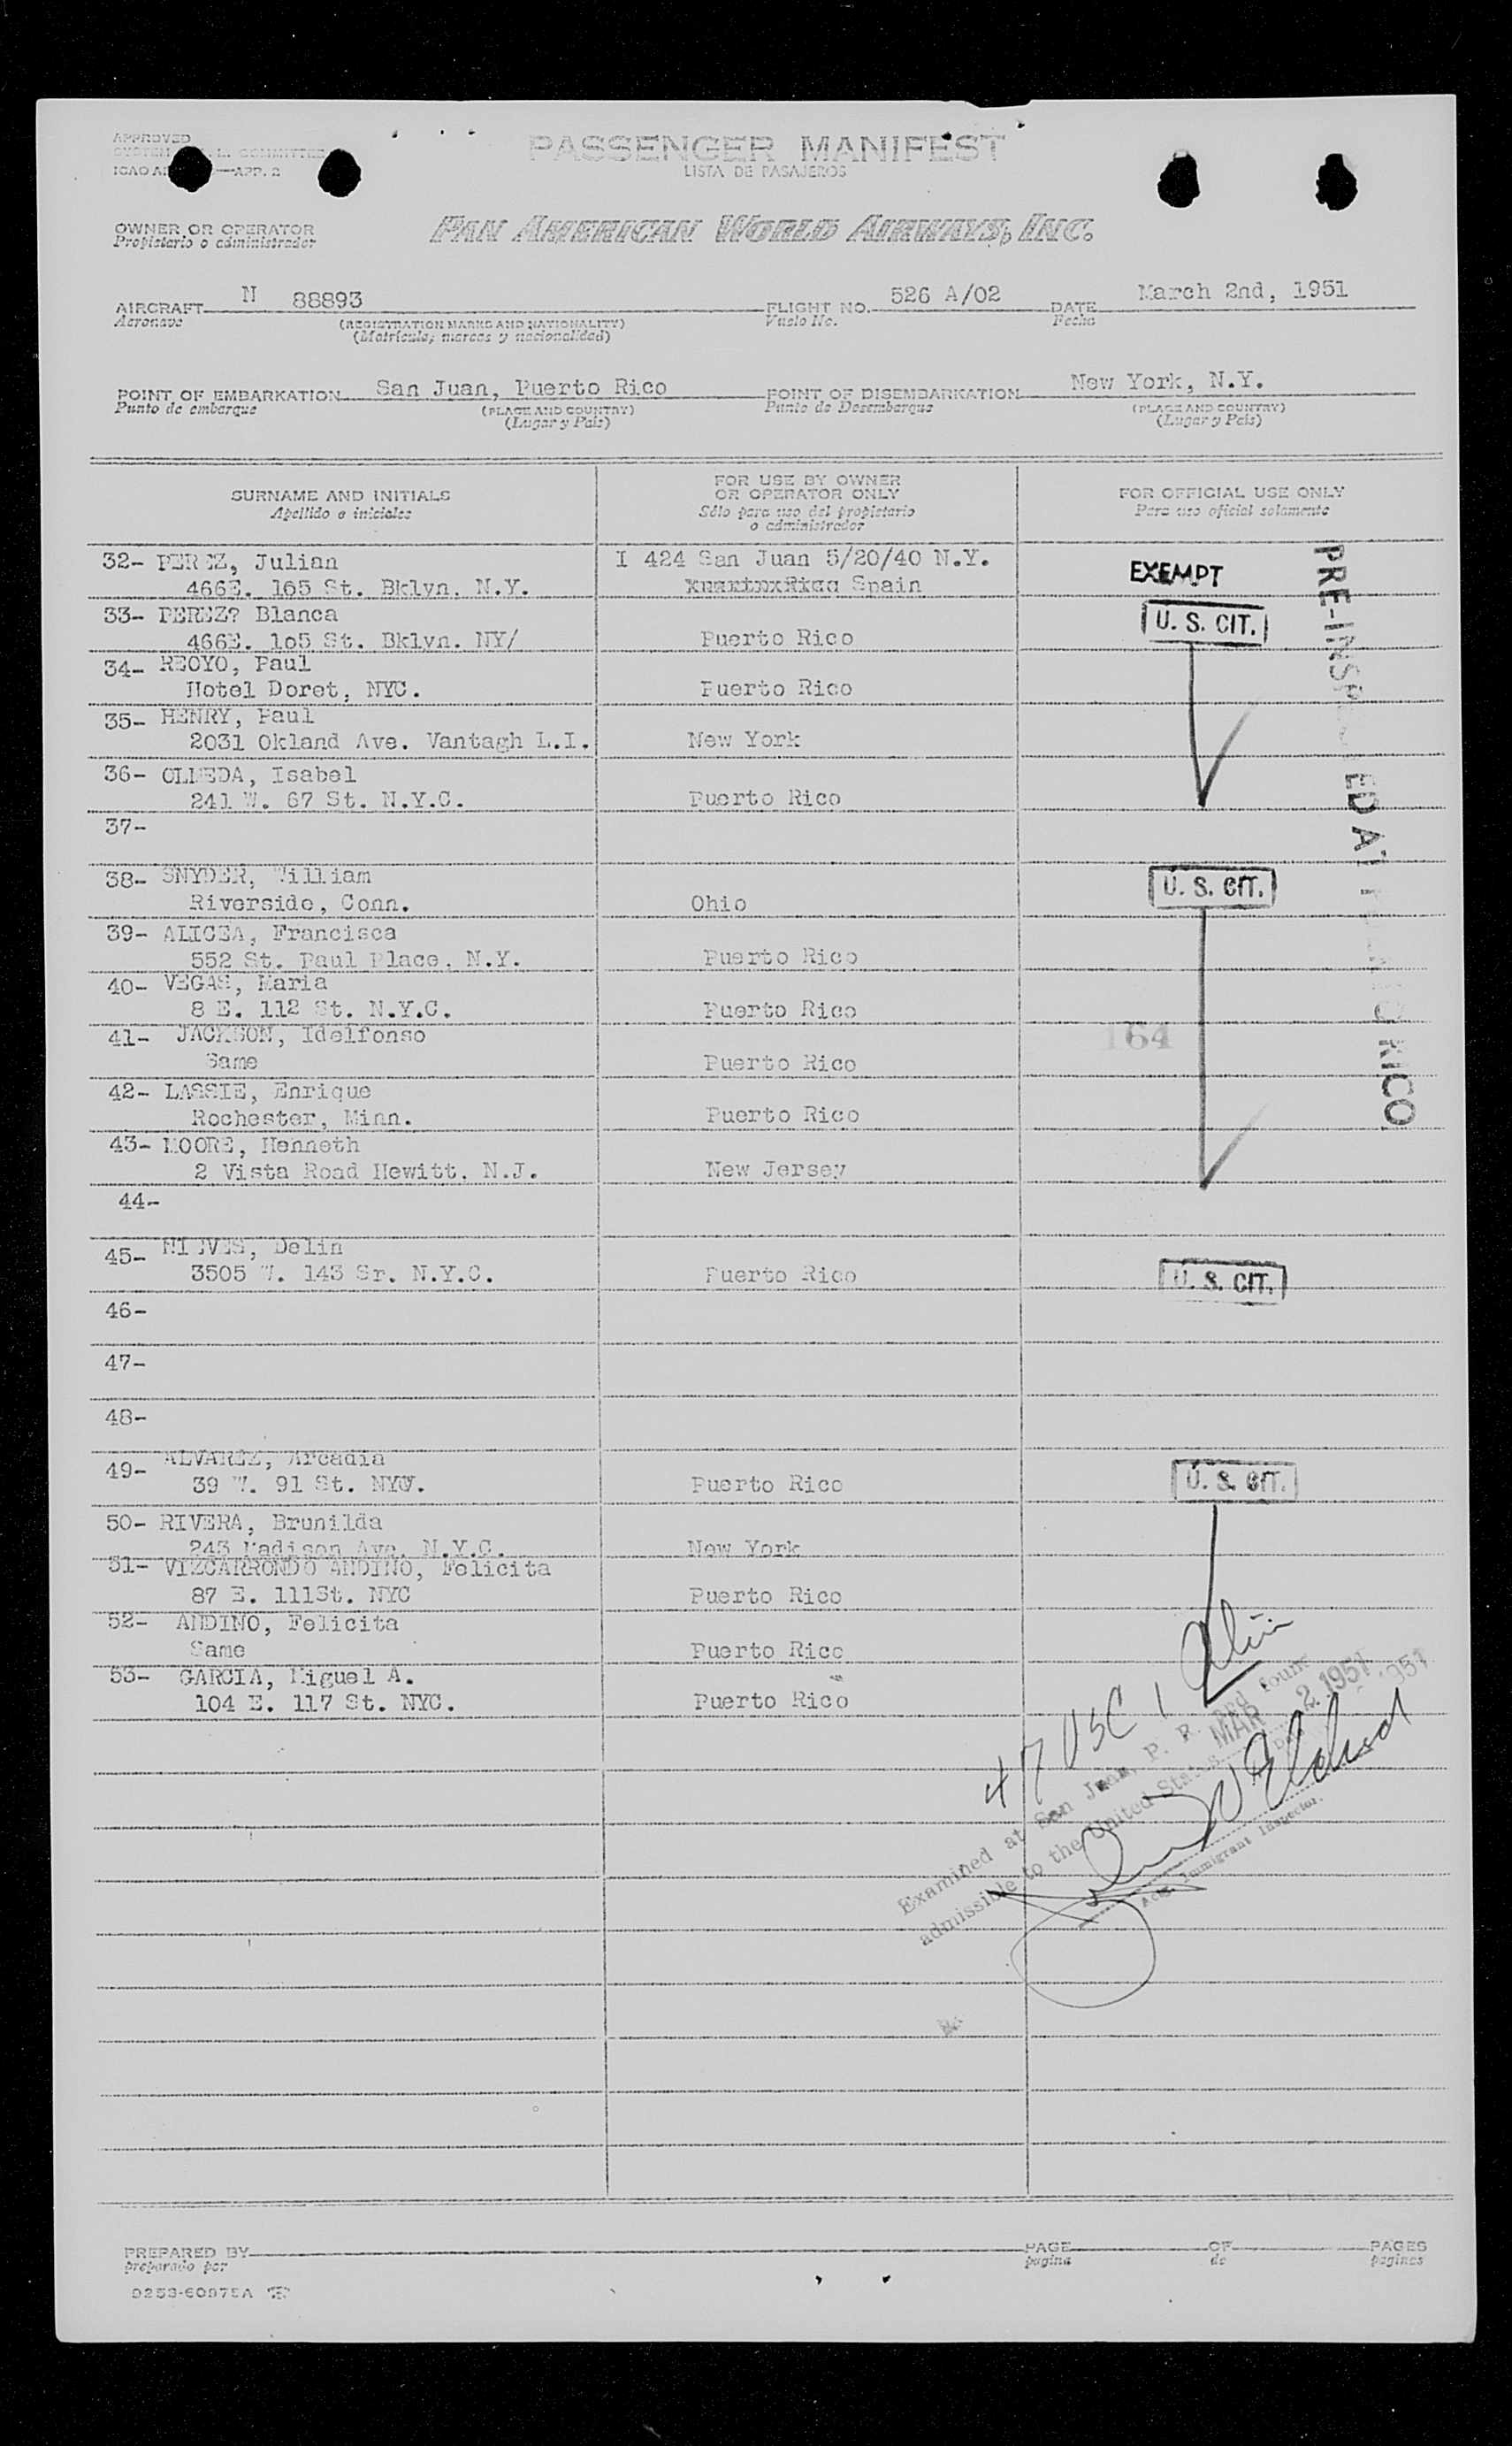 APPROVED
PASSENGER MANIFEST
LISTA DE PASAJEROS
ICAO —APP. 2
OWNER OR OPERATOR
Propietario o administrador
PAN AMERICAN WORLD AIRWAYS, INC.
AIRCRAFT N 88893 FLIGHT NO. 526 A/02 DATE March 2nd, 1951
Aeronave (REGISTRATION MARKS AND NATIONALITY) Vuelo No. Fecha
(Matrícula, marcas y nacionalidad)
POINT OF EMBARKATION San Juan, Puerto Rico POINT OF DISEMBARKATION New York, N.Y.
Punto de embarque (PLACE AND COUNTRY) Punto de Desembarque (PLACE AND COUNTRY)
(Lugar y País) (Lugar y País)
SURNAME AND INITIALS
Apellido e iniciales
FOR USE BY OWNER
OR OPERATOR ONLY
Sólo para uso del propietario
o administrador
FOR OFFICIAL USE ONLY
Para uso oficial solamente
32- PEREZ, Julian I 424 San Juan 5/20/40 N.Y.
466E. 165 St. Bklyn. N.Y. Spain EXEMPT
33- PEREZ? Blanca
466E. 165 St. Bklyn. NY/ Puerto Rico U. S. CIT.
34- REOYO, Paul
Hotel Doret, NYC. Puerto Rico
35- HENRY, Paul
2031 Okland Ave. Vantagh L.I. New York
36- OLMEDA, Isabel
241 W. 67 St. N.Y.C. Puerto Rico
37-
38- SNYDER, William
Riverside, Conn. Ohio U. S. CIT.
39- ALICEA, Francisca
552 St. Paul Place. N.Y. Puerto Rico
40- VEGAS, Maria
8 E. 112 St. N.Y.C. Puerto Rico
41- JACKSON, Idelfonso
Same Puerto Rico 164
42- LASSIE, Enrique
Rochester, Minn. Puerto Rico
43- MOORE, Henneth
2 Vista Road Hewitt, N.J. New Jersey
44-
45- NIEVES, Delin
3505 W. 143 Sr. N.Y.C. Puerto Rico U. S. CIT.
46-
47-
48-
49- ALVAREZ, Arcadia
39 W. 91 St. Puerto Rico U. S. CIT.
50- RIVERA, Brunilda
243 Madison Ave. N.Y.C. New York
51- VIZCARRONDO ANDINO, Felicita
87 E. 111St. NYC Puerto Rico
52- ANDINO, Felicita
Same Puerto Rico
53- GARCIA, Miguel A.
104 E. 117 St. NYC. Puerto Rico
PRE-INSP ED AT RICO
47 USC 1
Examined at San Juan, P. R. and found
admissible to the United States
MAR 2 1951
Immigrant Inspector.
PREPARED BY PAGE OF PAGES
preparado por página de páginas